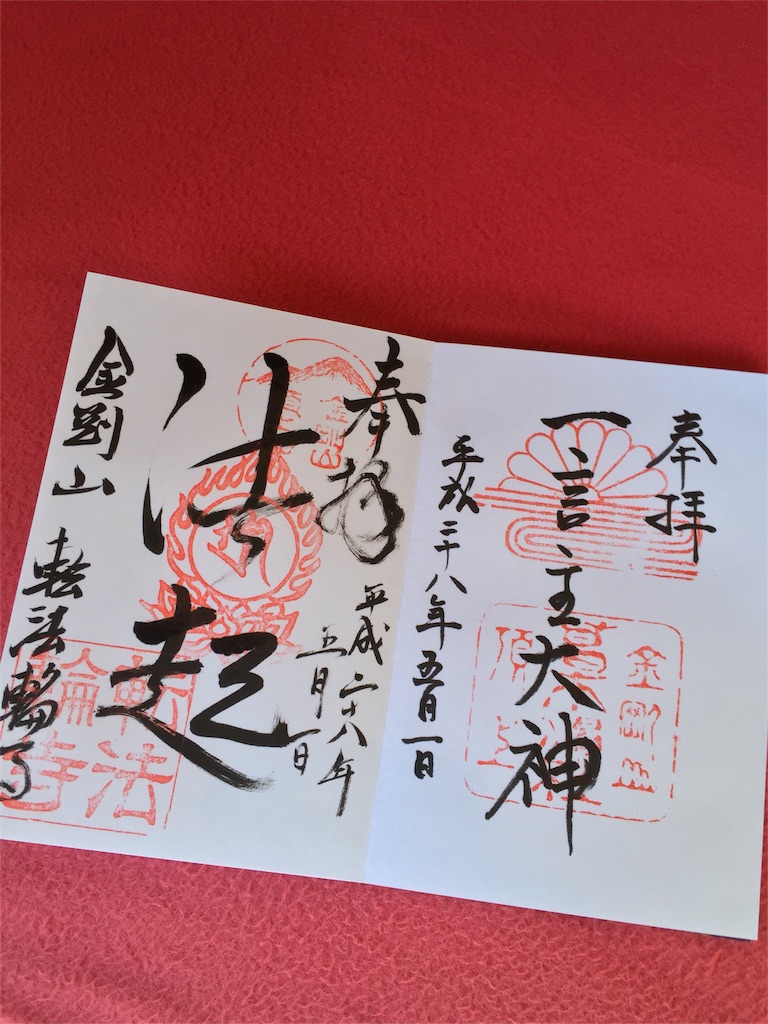 奉拝
一言主大神
金剛山
葛
平成二十八年五月一日
奉拝
法起
平成二十八年
五月一日
金剛山 転法輪寺
転法
輪寺